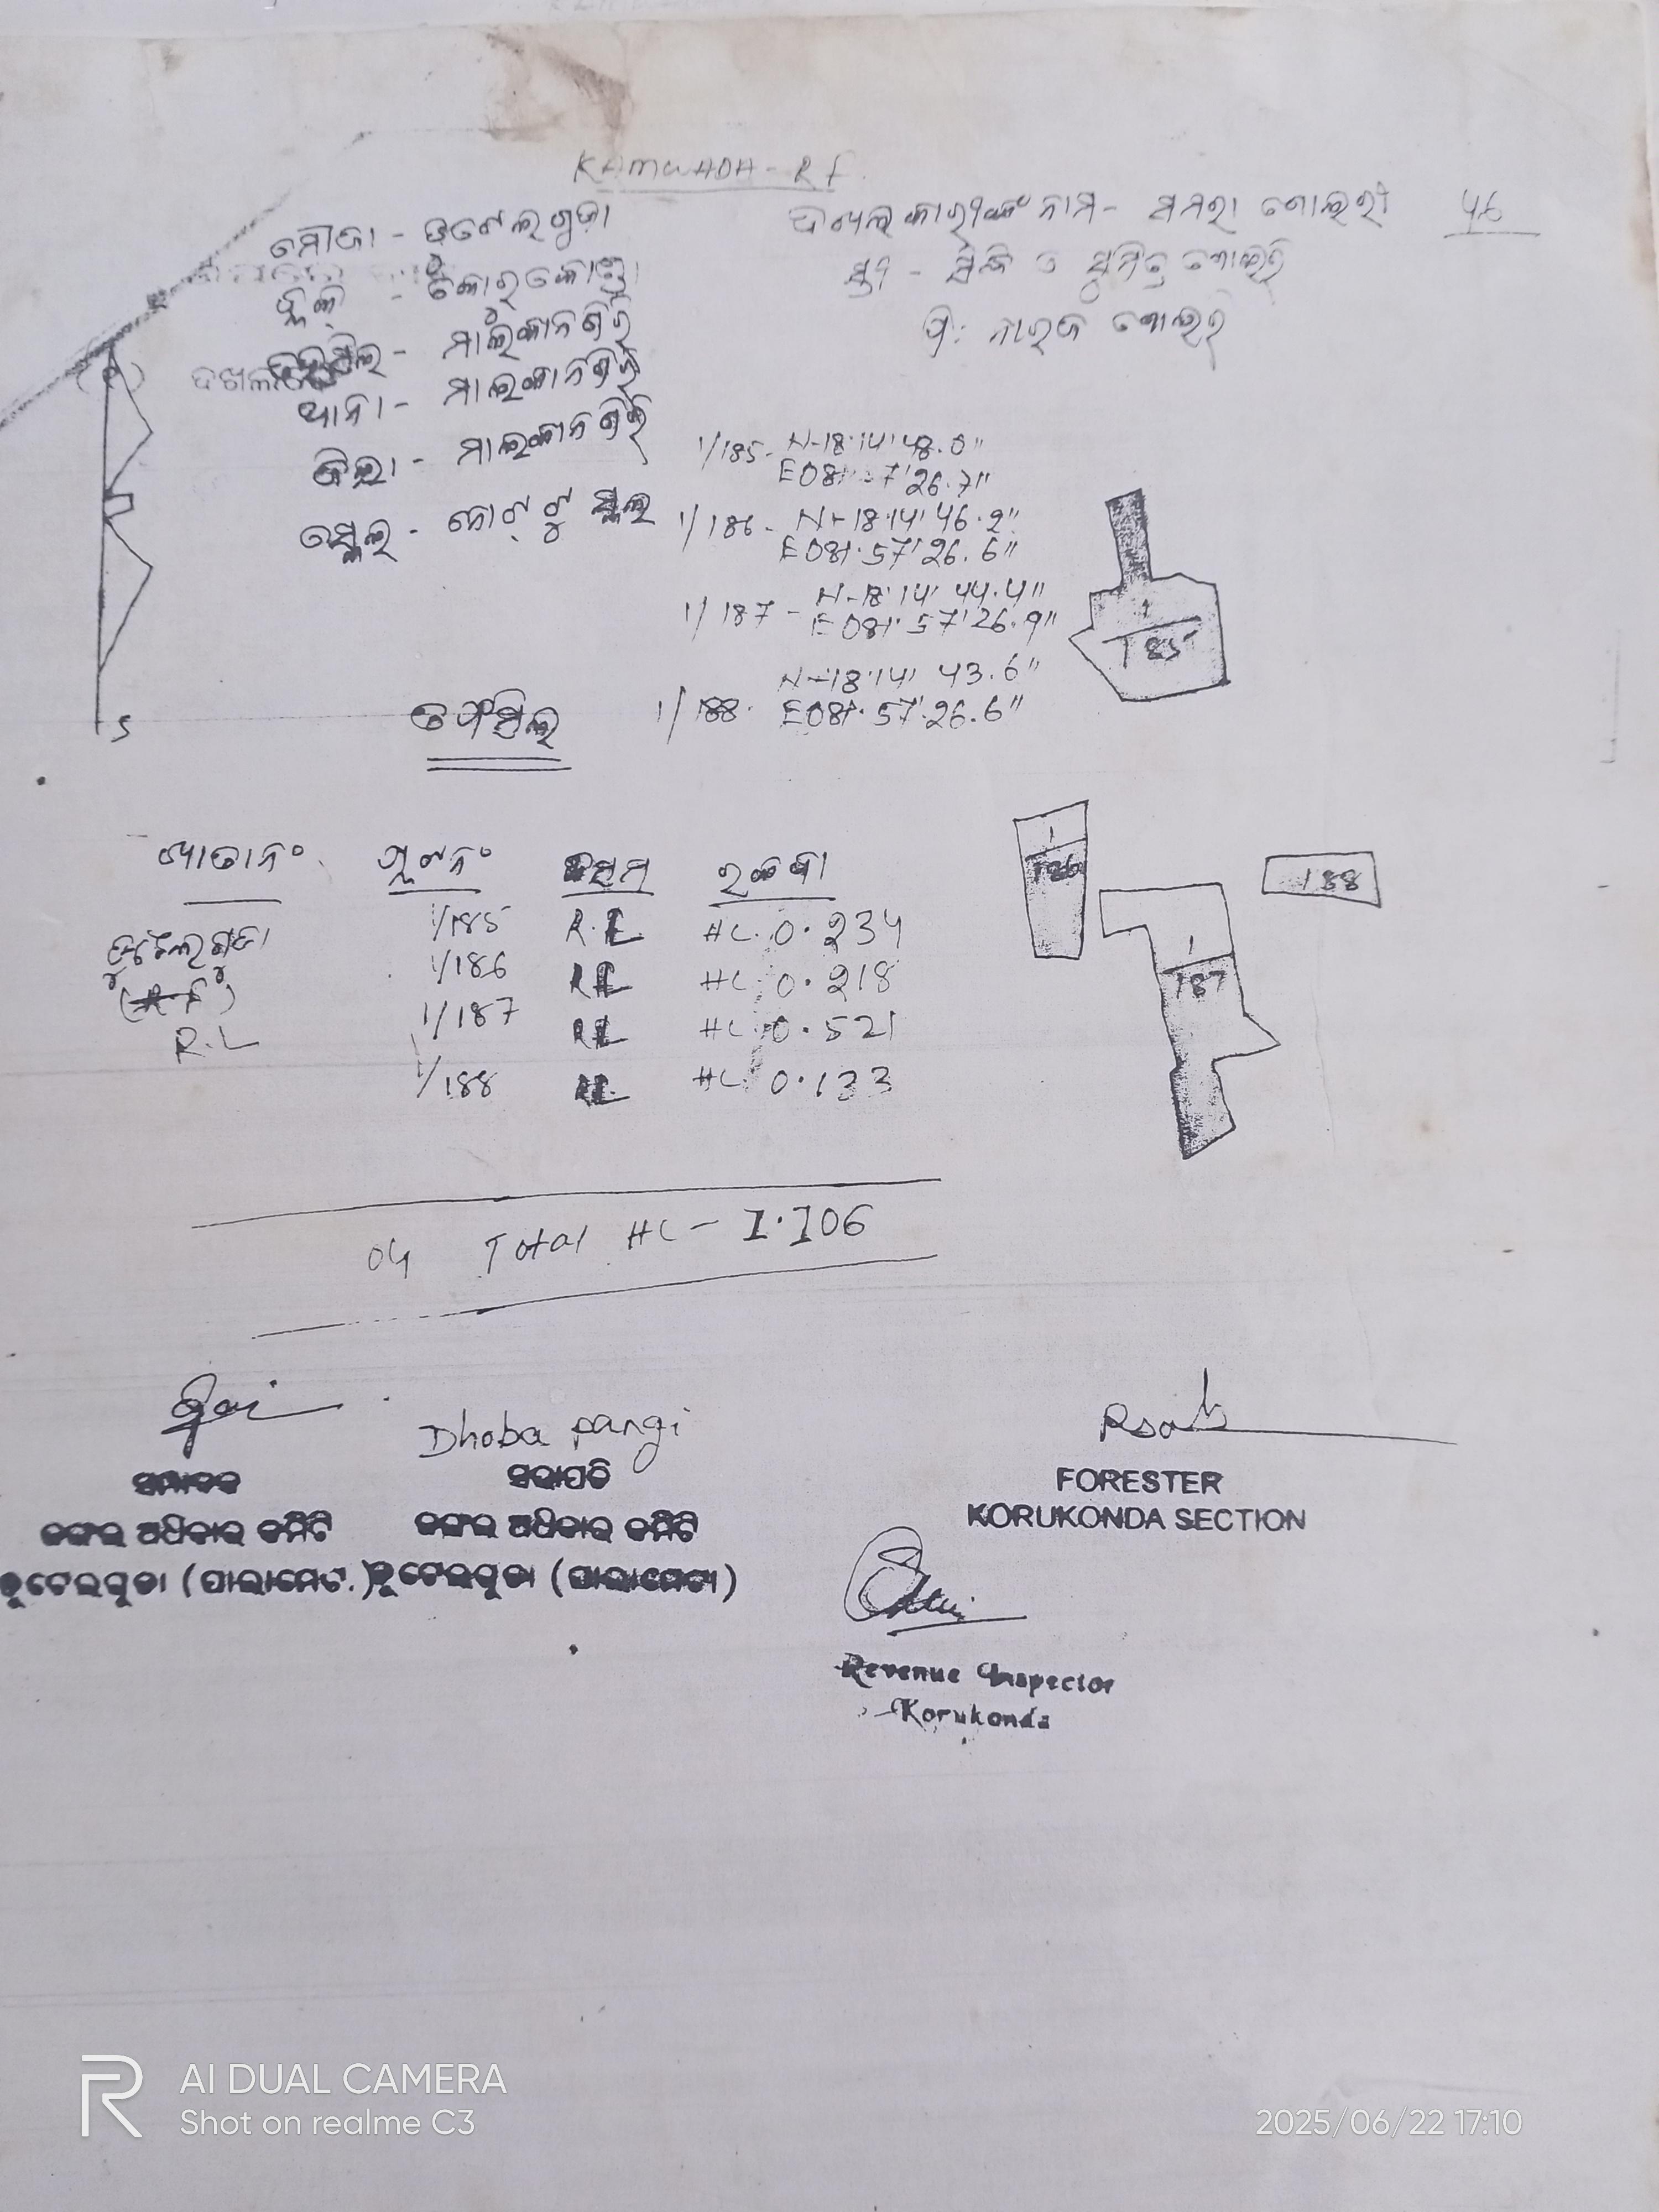 KAMWADA - R.F.
ମୌଜା - ଡୁଟେଲଗୁଡ଼ା
ବ୍ଲକ୍ - କୋରୁକୋଣ୍ଡା
ତହସିଲ - ମାଲକାନଗିରି
ଥାନା - ମାଲକାନଗିରି
ଜିଲ୍ଲା - ମାଲକାନଗିରି
ସ୍କେଲ - ନୋଟ୍ ଟୁ ସ୍କେଲ
ଦଖଲକାରୀଙ୍କ ନାମ - ସମରା ଗୋଲରୀ 46
ଦଖଲ
1/185 - N-18°14'48.0"
E081°57'26.7"
1/186 - N-18°14'46.2"
E081°57'26.6"
1/187 - N-18°14'44.4"
E081°57'26.9"
1/188. N-18°14'43.6"
E081°57'26.6"
S
1
185
ତଫସିଲ
ଖାତା ନଂ ପ୍ଲଟ ନଂ କିସମ ରକବା
ଡୁଟେଲଗୁଡ଼ା 1/185 R.L HC. 0.234
(R.F) 1/186 RL HC 0.218
R.L 1/187 RL HC 0.521
1/188 RL HC 0.133
1
186
188
1
187
04 Total HC - 1.106
Dhoba Pangi
ସମ୍ପାଦକ ସଭାପତି
ଜଙ୍ଗଲ ଅଧିକାର କମିଟି ଜଙ୍ଗଲ ଅଧିକାର କମିଟି
ଡୁଟେଲଗୁଡା (ପାଲାମେଟ.) ଡୁଟେଲଗୁଡା (ପାଲାମେଟା)
FORESTER
KORUKONDA SECTION
Revenue Inspector
Korukonda
AI DUAL CAMERA
Shot on realme C3
2025/06/22 17:10